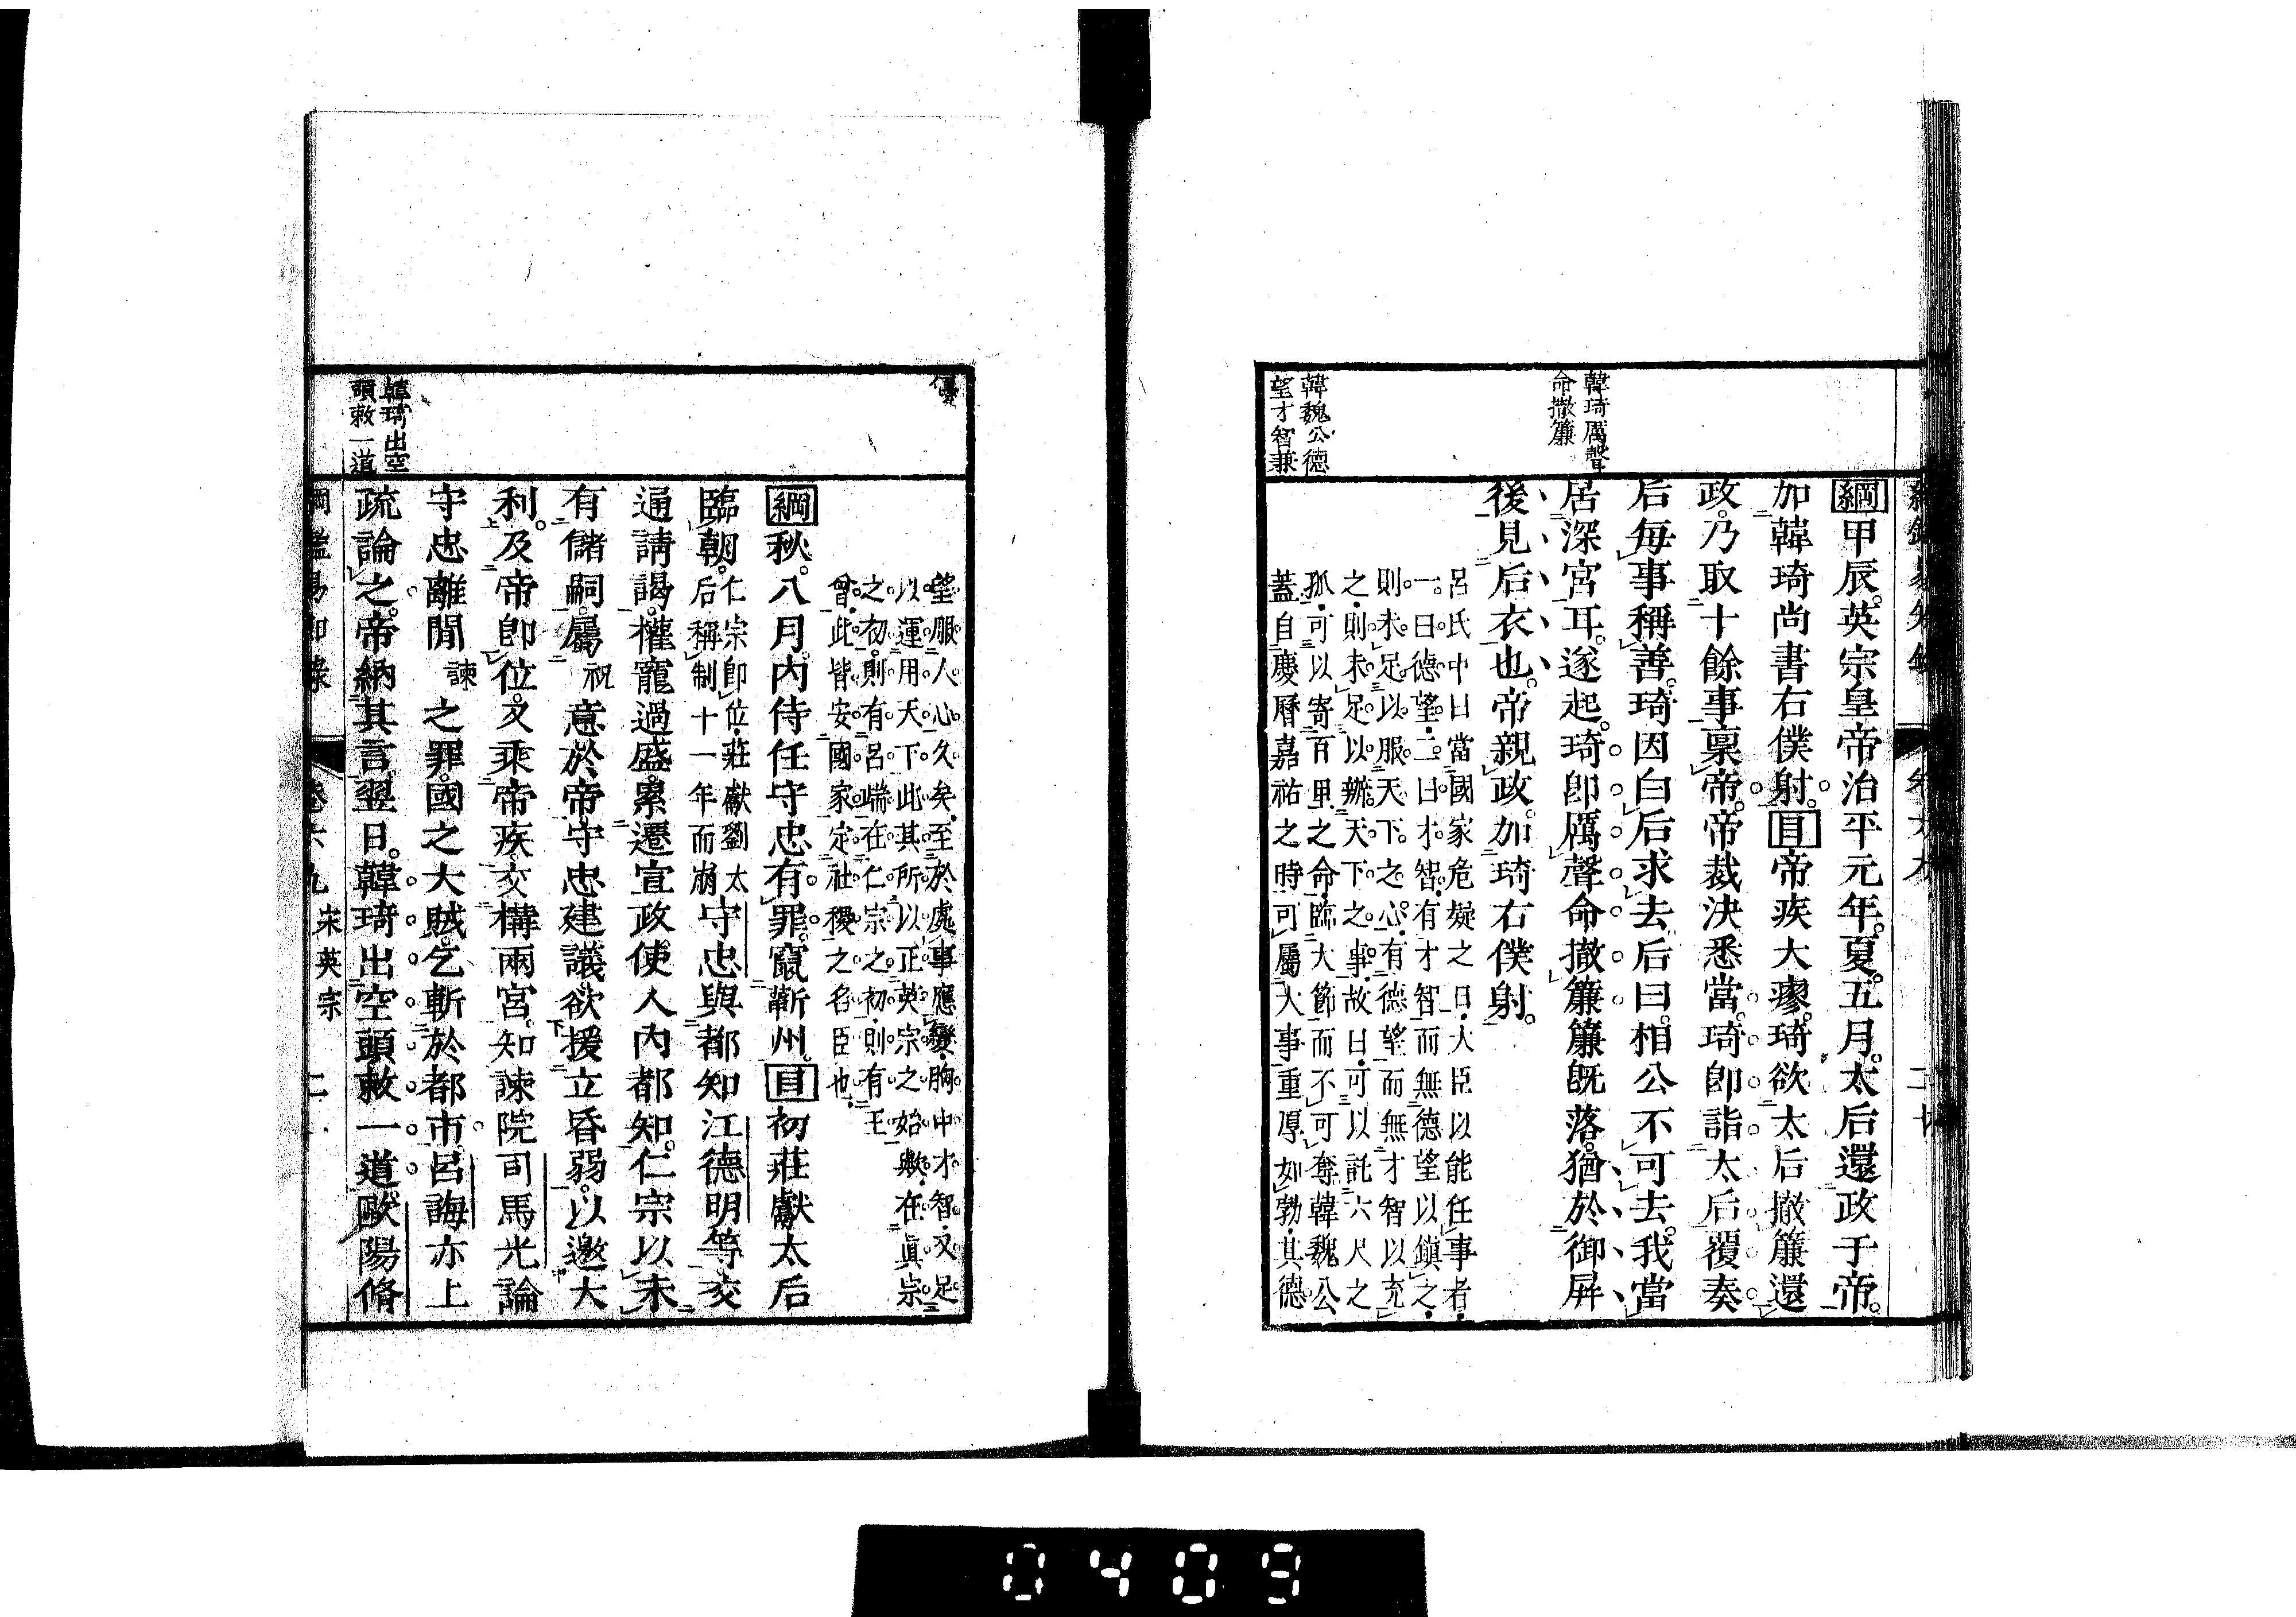 韓琦厲聲
命撤簾
韓魏公德
望才智兼
綱甲辰。英宗皇帝治平元年。夏。五月。太后還政于帝。
加韓琦尚書右僕射。目帝疾大瘳。琦欲太后撤簾還
政。乃取十餘事稟帝。帝裁決悉當。琦卽詣太后覆奏。
后每事稱善。琦因白后求去。后曰。相公不可去。我當
居深宮耳。遂起。琦卽厲聲命撤簾。簾旣落。猶於御屛
後見后衣也。帝親政。加琦右僕射。
呂氏中曰。當國家危疑之日。大臣以能任事者。
一曰德望。二曰才智。有才智而無德望以鎭之。
則未足以服天下之心。有德望而無才智以充
之。則未足以辦天下之事。故曰。可以託六尺之
孤。可以寄百里之命。臨大節而不可奪。韓魏公
蓋自慶曆嘉祐之時可屬大事重厚如勃。其德
優
望服人心久矣。至於處事應變。胸中才智。又足
以運用天下。此其所以正英宗之始歟。在眞宗
之初。則有呂端。在仁宗之初。則有王
曾。此皆安國家定社稷之名臣也。
綱秋。八月。內侍任守忠有罪。竄蘄州。目初莊獻太后
臨朝。仁宗卽位。莊獻劉太后稱制十一年而崩守忠與都知江德明等交
通請謁。權寵過盛。累遷宣政使人內都知。仁宗以未
有儲嗣。屬祝意於帝。守忠建議。欲援立昏弱。以邀大
利。及帝卽位。又乘帝疾。交構兩宮。知諫院司馬光論
守忠離間諫之罪。國之大賊。乞斬於都市。呂誨亦上
疏論之。帝納其言。翌日。韓琦出空頭敕一道。歐陽脩
韓琦出空
頭敕一道
綱鑑易知錄 卷六九 宋英宗